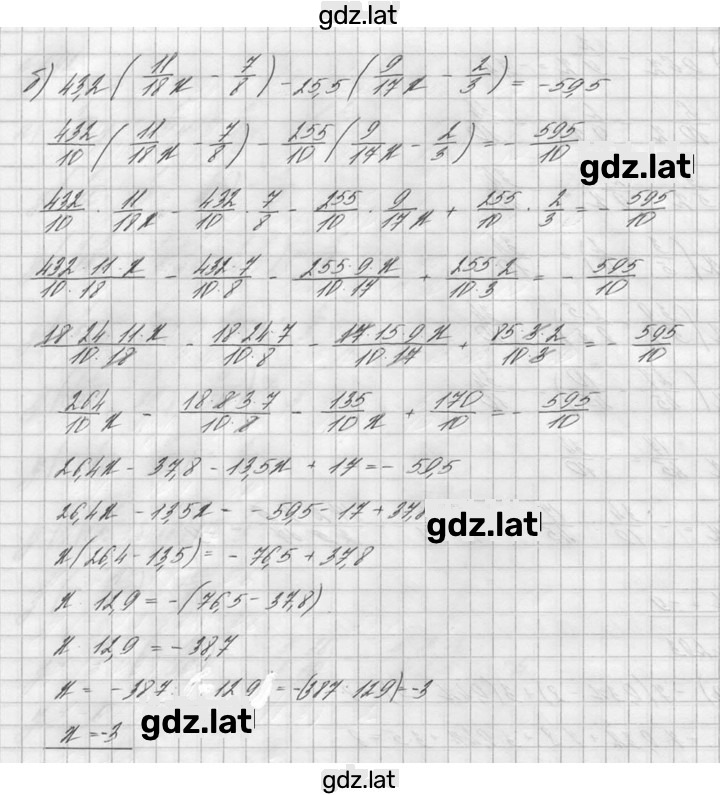 gdz.lat
б) 43,2 (11/18 x - 7/8) - 25,5 (9/17 x - 2/3) = -59,5
432/10 (11/18 x - 7/8) - 255/10 (9/17 x - 2/3) = - 595/10
gdz.lat
432/10 · 11/18 x - 432/10 · 7/8 - 255/10 · 9/17 x + 255/10 · 2/3 = - 595/10
432·11·x/10·18 - 432·7/10·8 - 255·9·x/10·17 + 255·2/10·3 = - 595/10
18·24·11·x/10·18 - 18·24·7/10·8 - 17·15·9·x/10·17 + 85·3·2/10·3 = - 595/10
264/10 x - 18·8·3·7/10·8 - 135/10 x + 170/10 = - 595/10
26,4x - 37,8 - 13,5x + 17 = - 59,5
26,4x - 13,5x = - 59,5 - 17 + 37,8
gdz.lat
x(26,4 - 13,5) = - 76,5 + 37,8
x · 12,9 = -(76,5 - 37,8)
x · 12,9 = - 38,7
x = -387 : 129 = -(387 : 129) = -3
gdz.lat
x = -3
gdz.lat